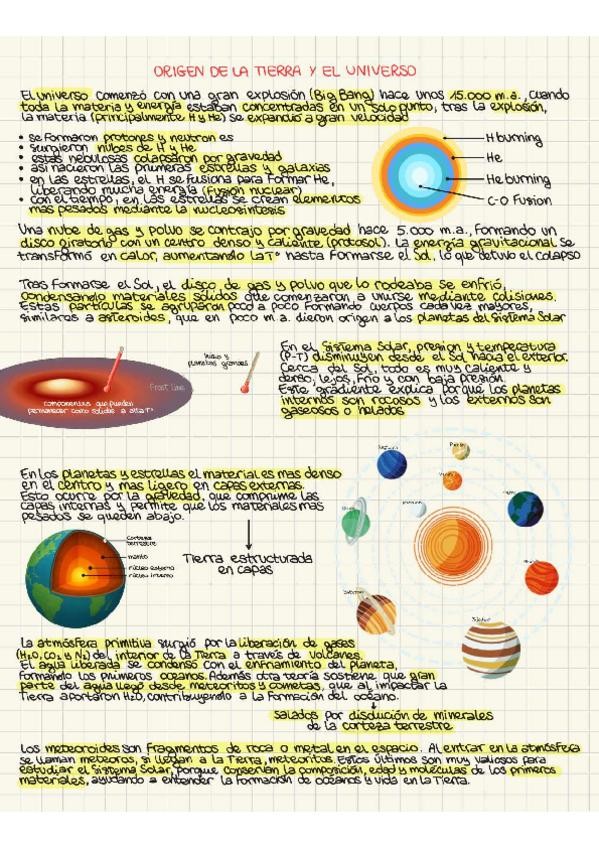 ORIGEN DE LA TIERRA Y EL UNIVERSO
El universo comenzó con una gran explosión (Big Bang) hace unos 15.000 m.a., cuando
toda la materia y energía estaban concentradas en un solo punto, tras la explosión,
la materia (principalmente H y He) se expandió a gran velocidad
• se formaron protones y neutrones
• surgieron nubes de H y He
• estas nebulosas colapsaron por gravedad
• así nacieron las primeras estrellas y galaxias
• en las estrellas, el H se fusiona para formar He,
liberando mucha energía (fusión nuclear)
• con el tiempo, en las estrellas se crean elementos
mas pesados mediante la nucleosíntesis
H burning
He
He burning
C-O Fusion
Una nube de gas y polvo se contrajo por gravedad hace 5.000 m.a., formando un
disco giratorio con un centro denso y caliente (protosol). La energía gravitacional se
transformó en calor, aumentando la Tº hasta formarse el Sol, lo que detuvo el colapso
Tras formarse el Sol, el disco de gas y polvo que lo rodeaba se enfrió,
condensando materiales sólidos que comenzaron a unirse mediante colisiones.
Estas partículas se agruparon poco a poco formando cuerpos cada vez mayores,
similares a asteroides, que en poco m.a. dieron origen a los planetas del Sistema Solar
Frost line
componentes que pueden
permanecer como sólidos a alta Tº
hielo y
planetas grandes
En el Sistema Solar, presion y temperatura
(P-T) disminuyen desde el Sol hacia el exterior.
Cerca del Sol, todo es muy caliente y
denso; lejos, frío y con baja presión.
Este gradiente explica porque los planetas
internos son rocosos y los externos son
gaseosos o helados
En los planetas y estrellas el material es mas denso
en el centro y mas ligero en capas externas.
Esto ocurre por la gravedad, que comprime las
capas internas y permite que los materiales mas
pesados se queden abajo.
Tierra estructurada
en capas
corteza
terrestre
manto
núcleo externo
núcleo interno
La atmósfera primitiva surgió por la liberación de gases
(H₂O, CO₂ y N₂) del interior de la Tierra a través de volcanes.
El agua liberada se condensó con el enfriamiento del planeta,
formando los primeros oceanos. Además otra teoría sostiene que gran
parte del agua llegó desde meteoritos y cometas, que al impactar la
Tierra aportaron H₂O, contribuyendo a la formación del océano.
salados por disolución de minerales
de la corteza terrestre
Los meteoroides son fragmentos de roca o metal en el espacio. Al entrar en la atmósfera
se llaman meteoros, si llegan a la Tierra, meteoritos. Estos últimos son muy valiosos para
estudiar el Sistema Solar, porque conservan la composición, edad y moléculas de los primeros
materiales, ayudando a entender la formación de océanos y vida en la Tierra.